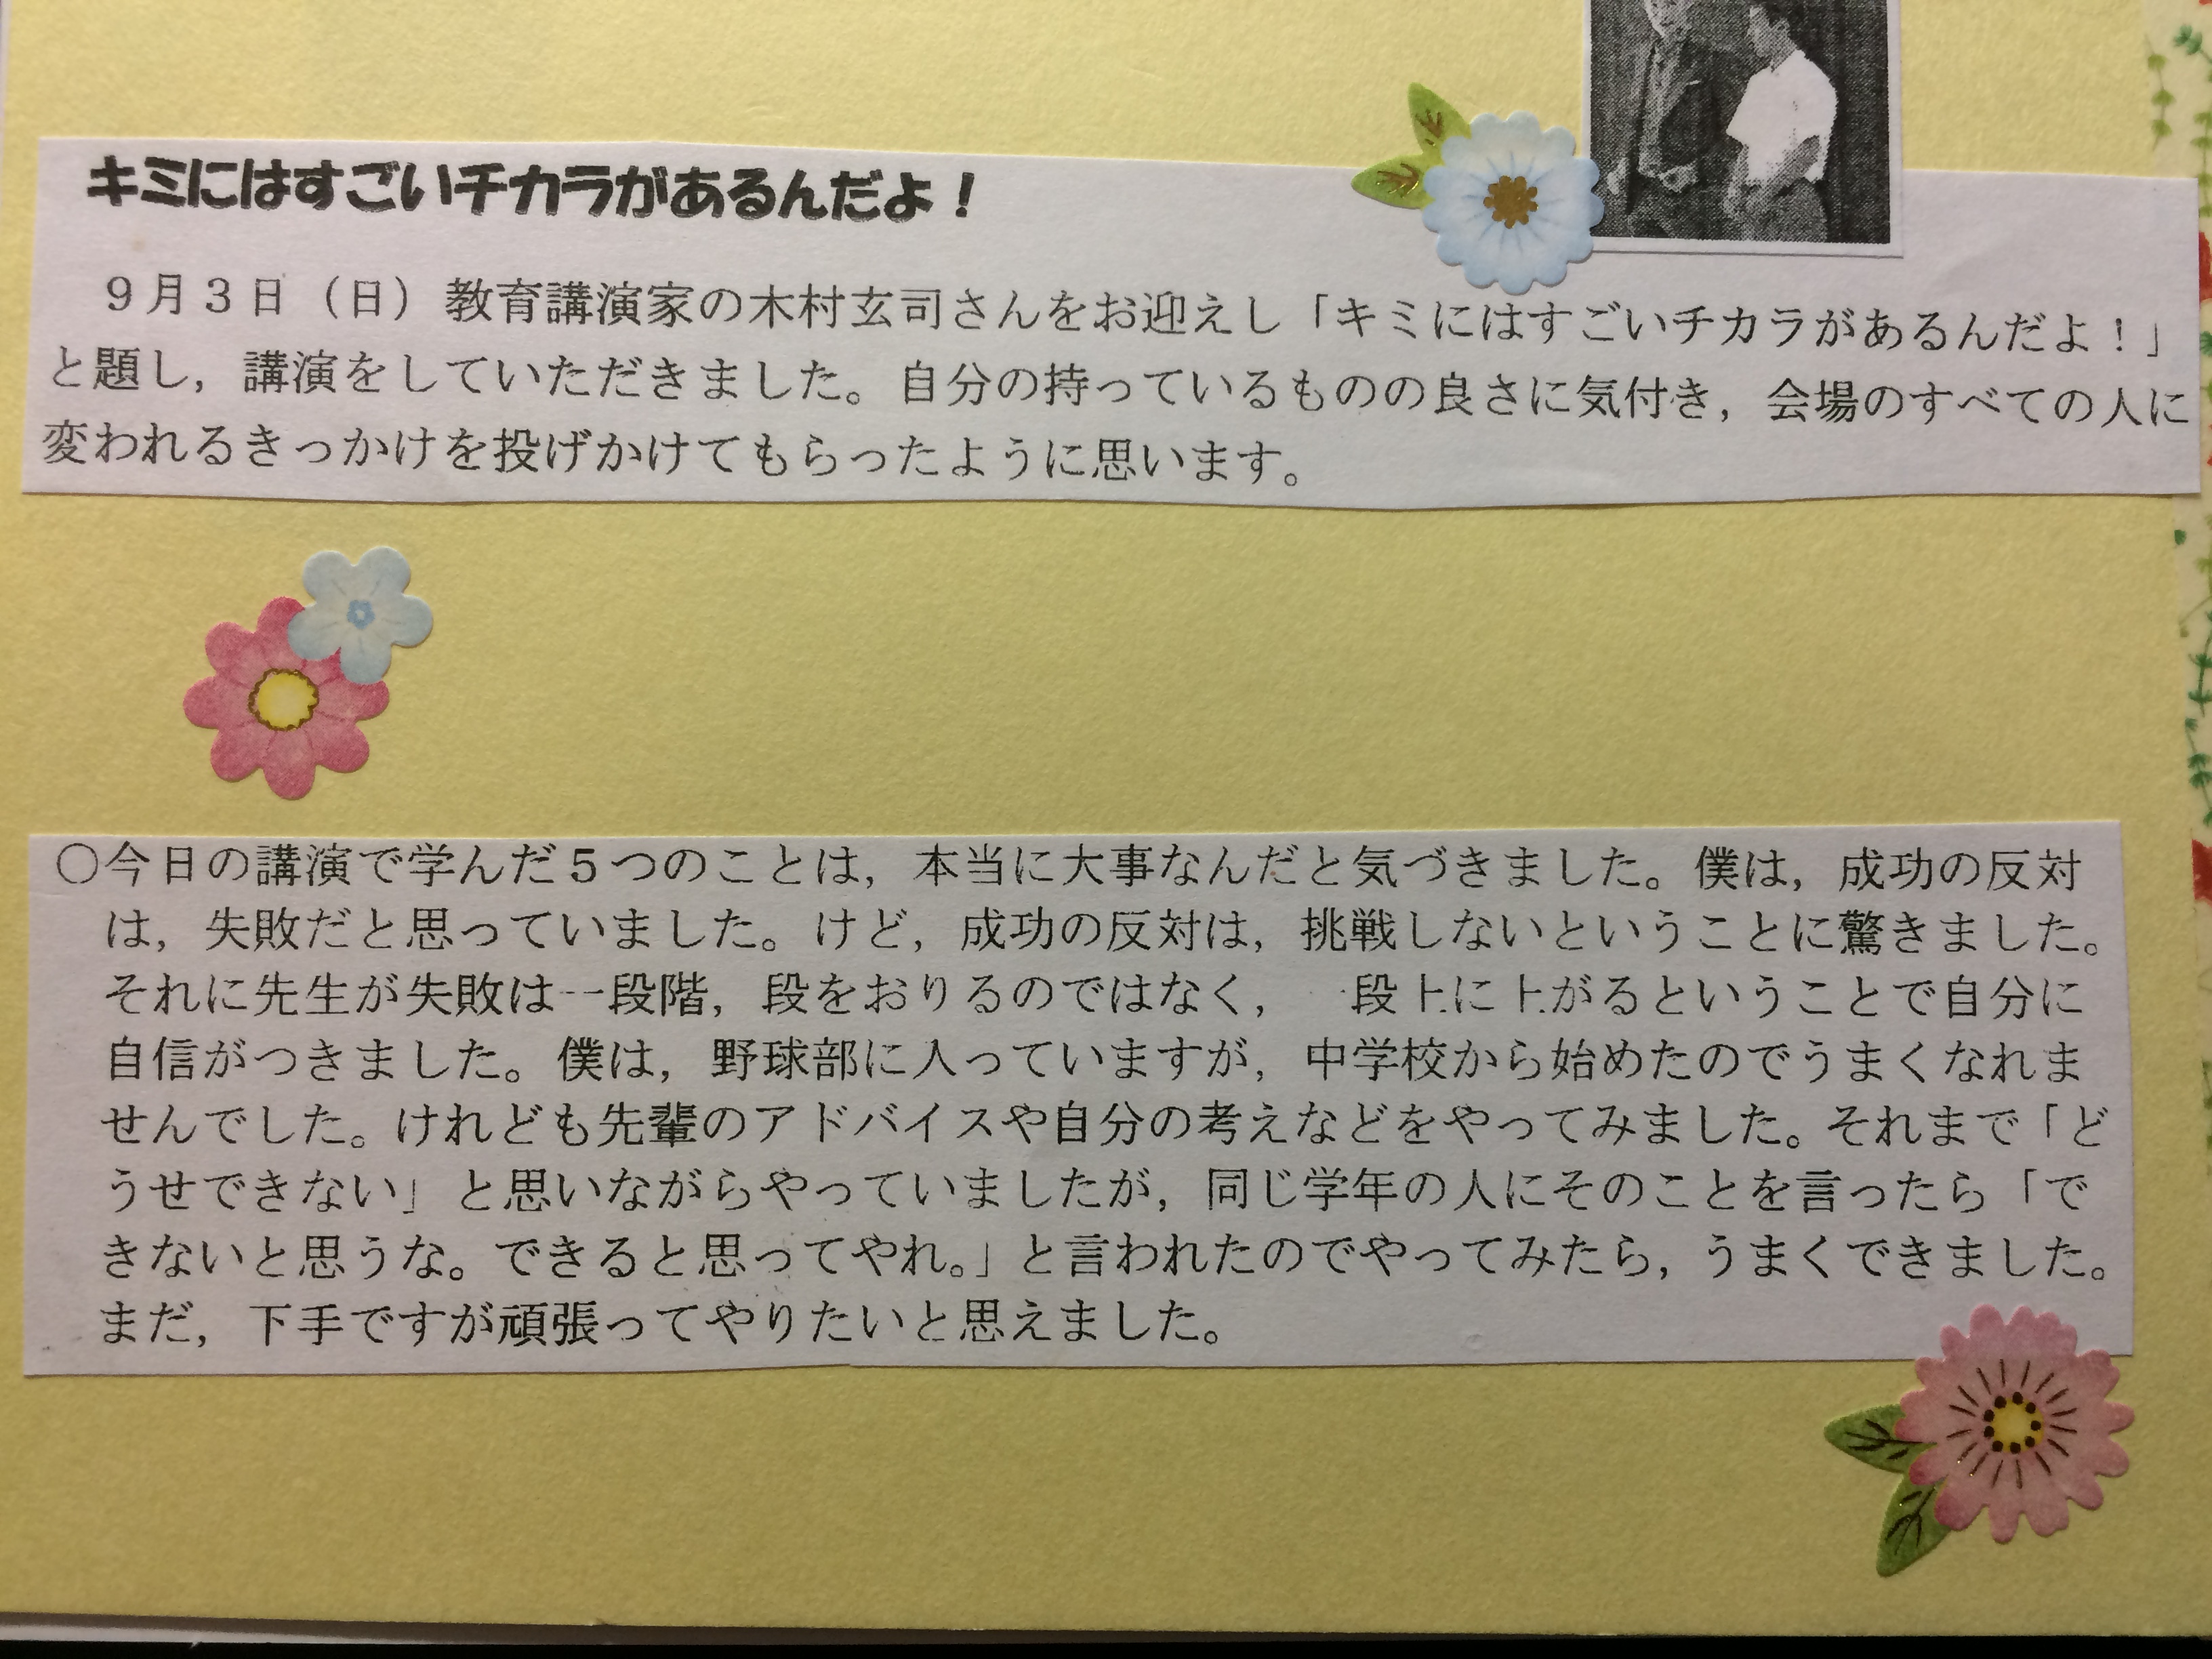 キミにはすごいチカラがあるんだよ！
９月３日（日）教育講演家の木村玄司さんをお迎えし「キミにはすごいチカラがあるんだよ！」
と題し，講演をしていただきました。自分の持っているものの良さに気付き，会場のすべての人に
変われるきっかけを投げかけてもらったように思います。
〇今日の講演で学んだ５つのことは，本当に大事なんだと気づきました。僕は，成功の反対
は，失敗だと思っていました。けど，成功の反対は，挑戦しないということに驚きました。
それに先生が失敗は一段階，段をおりるのではなく，一段上に上がるということで自分に
自信がつきました。僕は，野球部に入っていますが，中学校から始めたのでうまくなれま
せんでした。けれども先輩のアドバイスや自分の考えなどをやってみました。それまで「ど
うせできない」と思いながらやっていましたが，同じ学年の人にそのことを言ったら「で
きないと思うな。できると思ってやれ。」と言われたのでやってみたら，うまくできました。
まだ，下手ですが頑張ってやりたいと思えました。